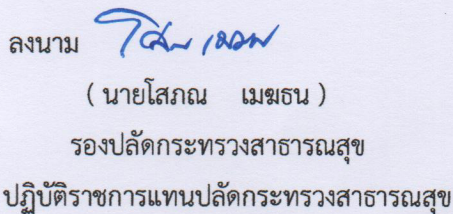 ลงนาม
( นายโสภณ เมฆธน )
รองปลัดกระทรวงสาธารณสุข
ปฏิบัติราชการแทนปลัดกระทรวงสาธารณสุข